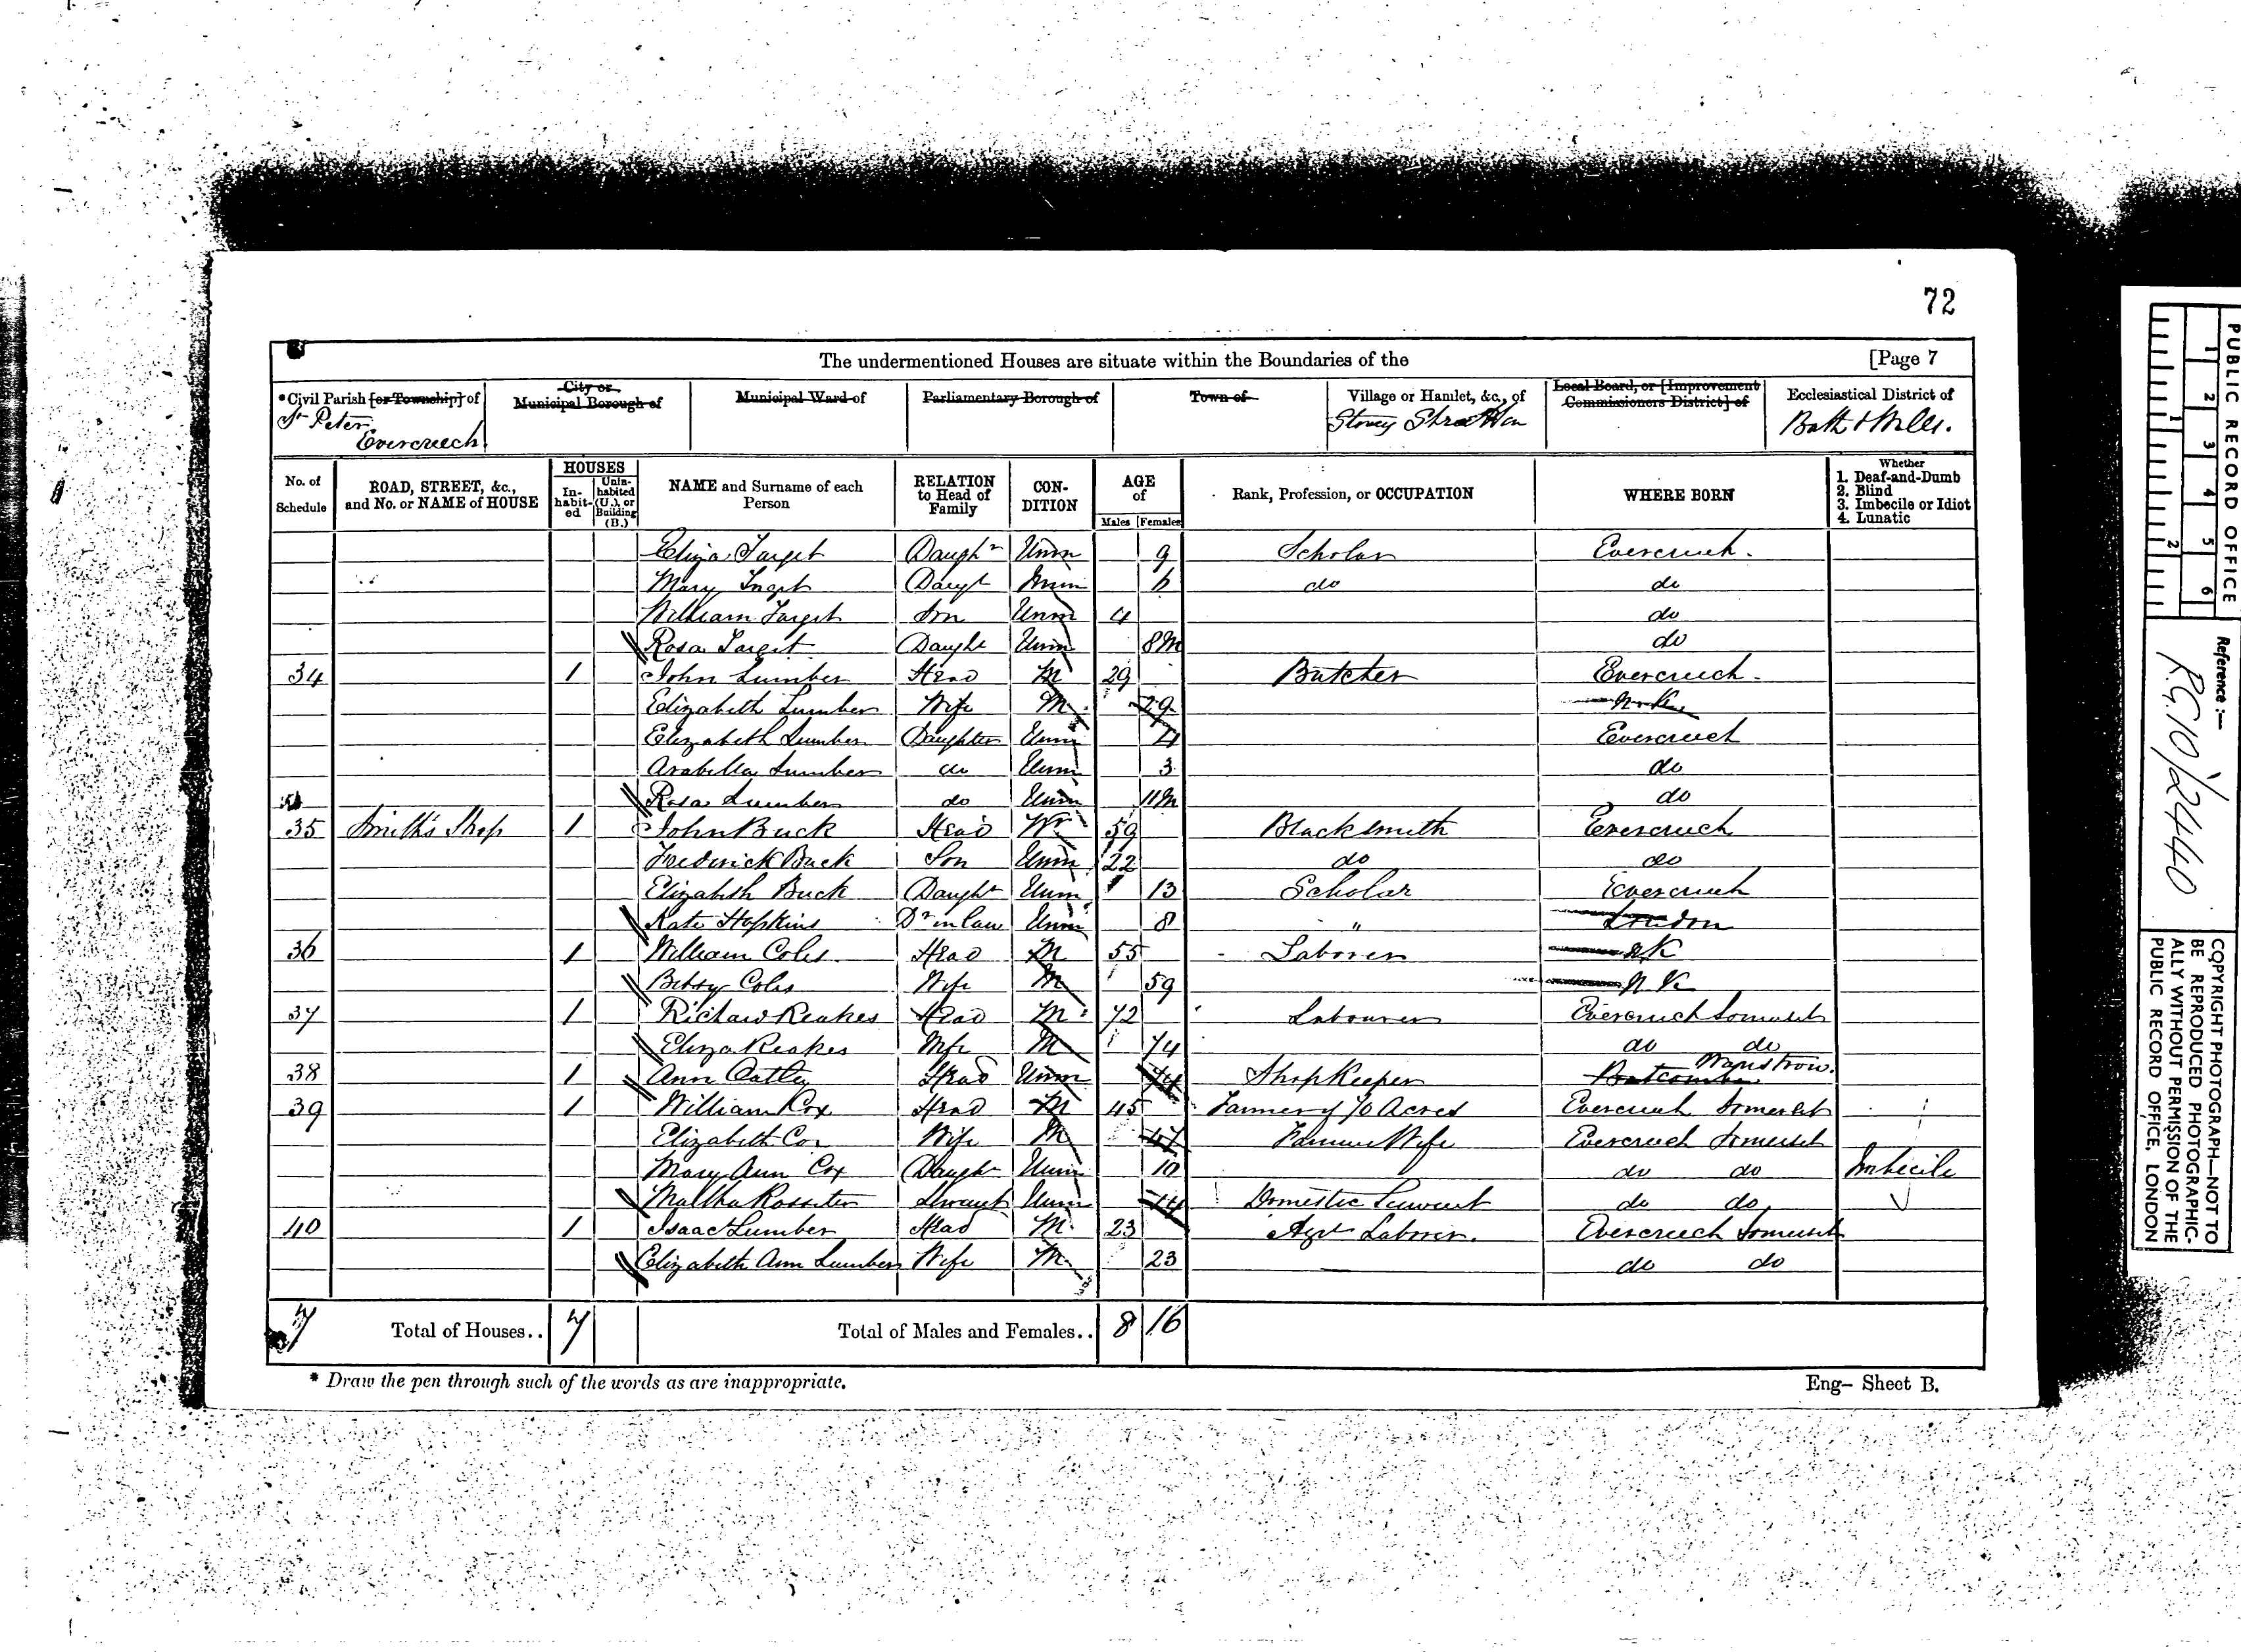 72
The undermentioned Houses are situate within the Boundaries of the [Page 7
* Civil Parish [or Township] of City or Municipal Borough of Municipal Ward of Parliamentary Borough of Town of Village or Hamlet, &c., of Local Board, or [Improvement Commissioners District] of Ecclesiastical District of
St Peter Evercreech Stoney Stratton Bath & Wells.
No. of Schedule ROAD, STREET, &c., and No. or NAME of HOUSE HOUSES Inhabited Uninhabited (U.), or Building (B.) NAME and Surname of each Person RELATION to Head of Family CONDITION AGE of Males Females Rank, Profession, or OCCUPATION WHERE BORN Whether 1. Deaf-and-Dumb 2. Blind 3. Imbecile or Idiot 4. Lunatic
Eliza Target Daughr Unm 9 Scholar Evercreech.
Mary Target Daugt Unm 6 do do
William Target Son Unm 4 do
Rosa Target Daught Unm 8M do
34 1 John Lumber Head M 29 Butcher Evercreech.
Elizabeth Lumber Wife M 29 N.K.
Elizabeth Lumber Daughter Unm 4 Evercreech
Arabella Lumber do Unm 3 do
Rosa Lumber do Unm 11M do
35 Smith's Shop 1 John Buck Head Wr 59 Blacksmith Evercreech
Frederick Buck Son Unm 22 do do
Elizabeth Buck Daughr Unm 13 Scholar Evercreech
Kate Hopkins Dr in Law Unm 8 " London
36 1 William Coles Head M 55 Laborer NK
Betsy Coles Wife M 59 N K
37 1 Richard Reakes Head M 72 Labourer Evercreech Somerset
Eliza Reakes Wife M 74 do do
38 1 Ann Oatley Head Unm 74 ShopKeeper Batcombe Wanstrow.
39 1 William Cox Head M 45 Farmer of 70 Acres Evercreech Somerset
Elizabeth Cox Wife M 47 Farmers Wife Evercreech Somerset
Mary Ann Cox Daughr Unm 10 do do Imbecile
Martha Rossiter Servant Unm 14 Domestic Servant do do
40 1 Isaac Lumber Head M 23 Agr Laborer. Evercreech Somerset
Elizabeth Ann Lumber Wife M 23 do do
7 Total of Houses.. 7 Total of Males and Females.. 8 16
* Draw the pen through such of the words as are inappropriate.
Eng- Sheet B.
PUBLIC RECORD OFFICE
1 2 3 4 5 6
1 2
Reference :-
R.G.10/2440
COPYRIGHT PHOTOGRAPH—NOT TO
BE REPRODUCED PHOTOGRAPHIC-
ALLY WITHOUT PERMISSION OF THE
PUBLIC RECORD OFFICE, LONDON